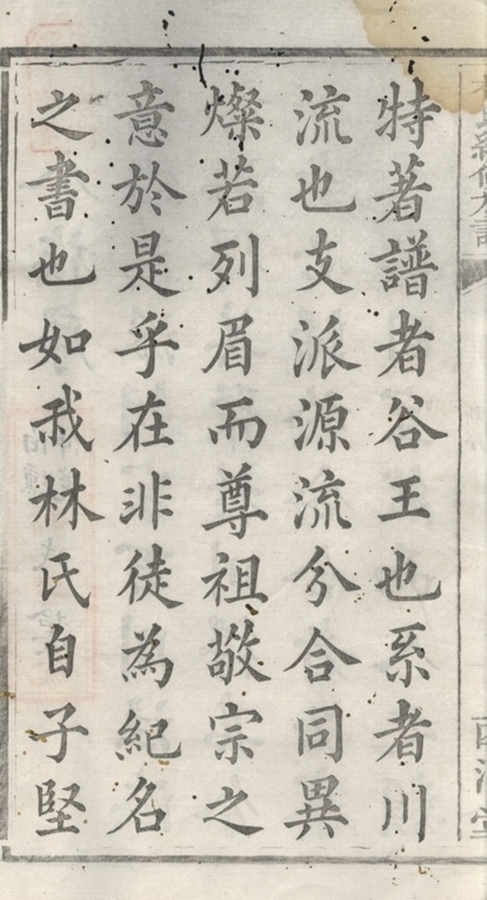 特著譜者谷王也系者川
流也支派源流分合同異
燦若列眉而尊祖敬宗之
意於是乎在非徒為紀名
之書也如我林氏自子堅